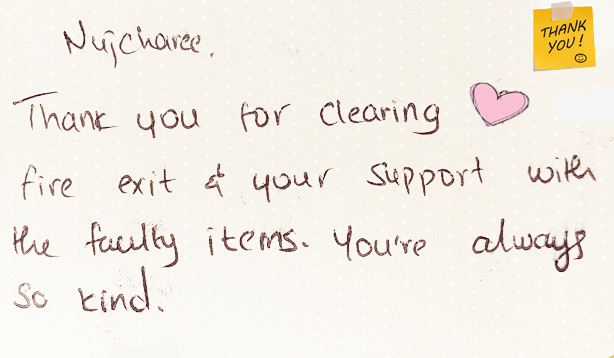 Nujcharee.
THANK
YOU!
Thank you for clearing
fire exit & your support with
the faculty items. You're always
so kind.